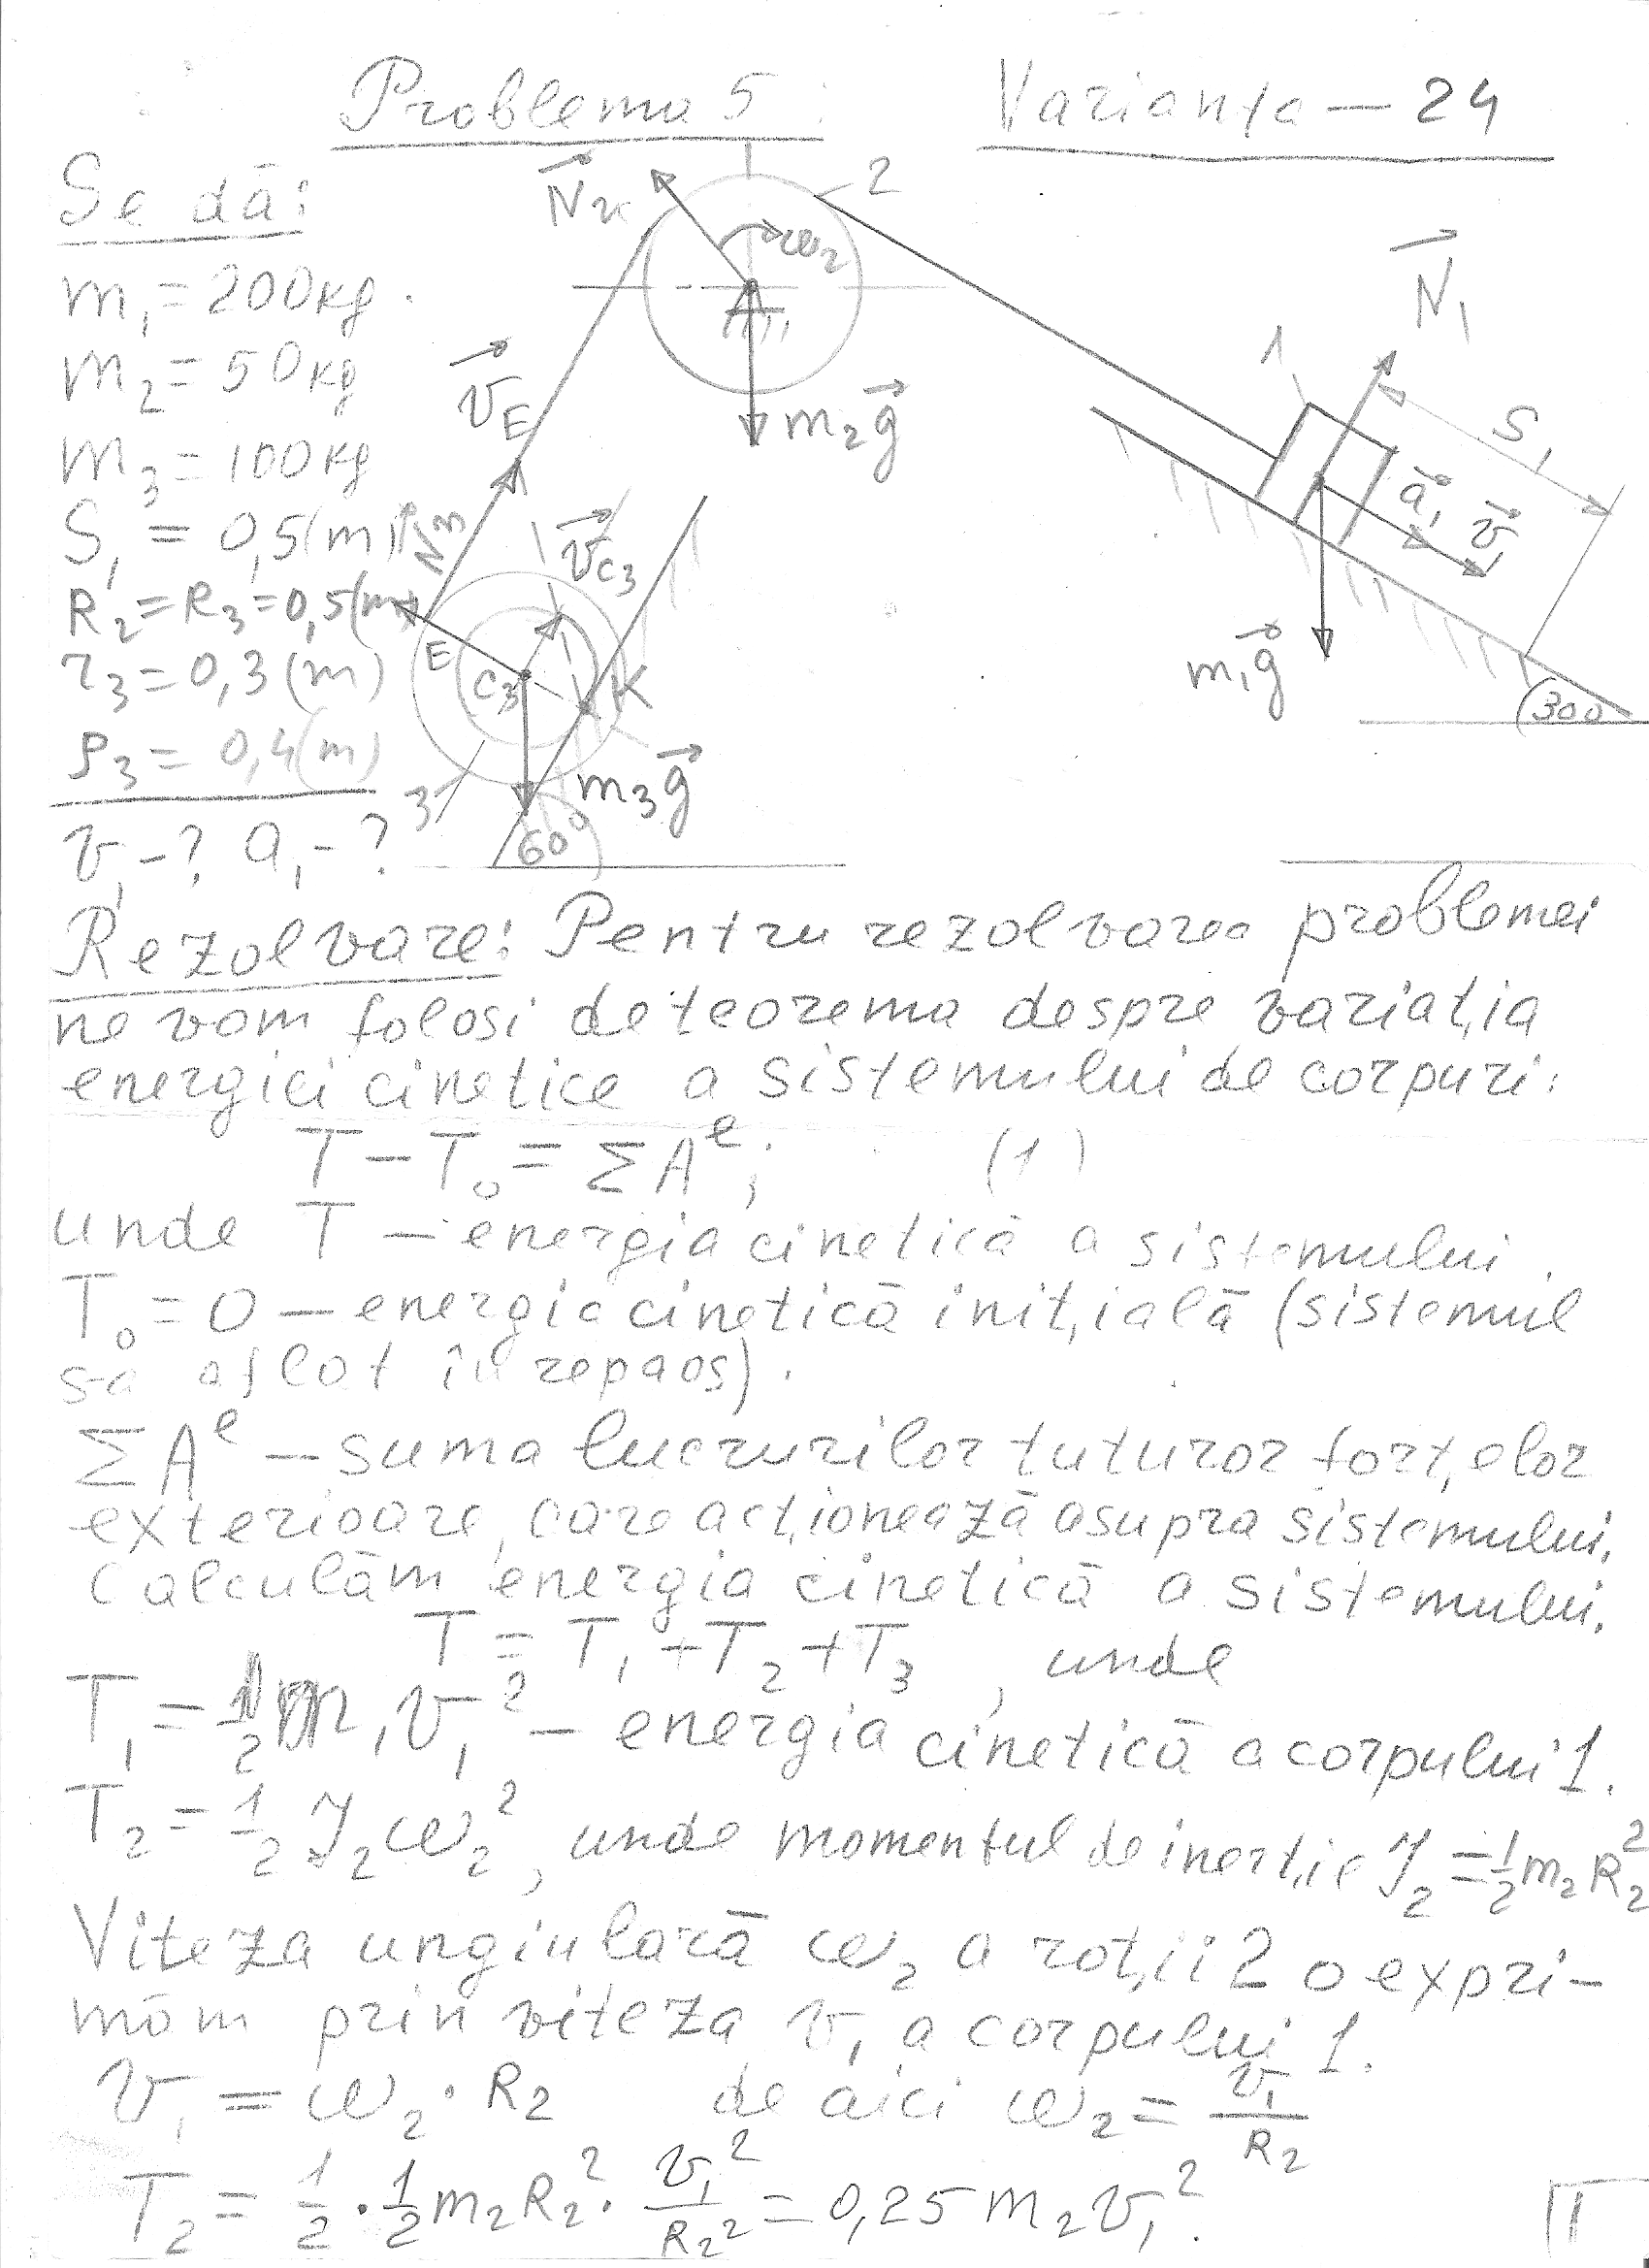 Problema 5 : Varianța — 24
Se dă:
m₁ = 200kg
m₂ = 50kg
m₃ = 100kg
S₁ = 0,5(m)
R₂ = R₃ = 0,5(m)
r₃ = 0,3(m)
ρ₃ = 0,4(m)
v₁ - ? a₁ - ?
2
ω₂
m₂g⃗
v⃗E
v⃗C₃
E
C₃
K
3
m₃g⃗
60°
N⃗₁
1
S₁
a⃗₁
v⃗₁
m₁g⃗
30°
Rezolvare: Pentru rezolvarea problemei
ne vom folosi de teorema despre variația
energiei cinetice a sistemului de corpuri:
T − T₀ = ΣAᵉ; (1)
unde T — energia cinetică a sistemului.
T₀ = 0 — energia cinetică inițială (sistemul
s-a aflat în repaos).
ΣAᵉ — suma lucrurilor tuturor forțelor
exterioare, care acționează asupra sistemului.
Calculăm energia cinetică a sistemului.
T = T₁ + T₂ + T₃, unde
T₁ = ½m₁v₁² — energia cinetică a corpului 1.
T₂ = ½ J₂ω₂², unde momentul de inerție J₂ = ½m₂R₂²
Viteza unghiulară ω₂ a roții 2 o expri-
măm prin viteza v₁ a corpului 1.
v₁ = ω₂ · R₂ de aici ω₂ = v₁/R₂
T₂ = ½ · ½ m₂R₂² · v₁²/R₂² = 0,25 m₂v₁².